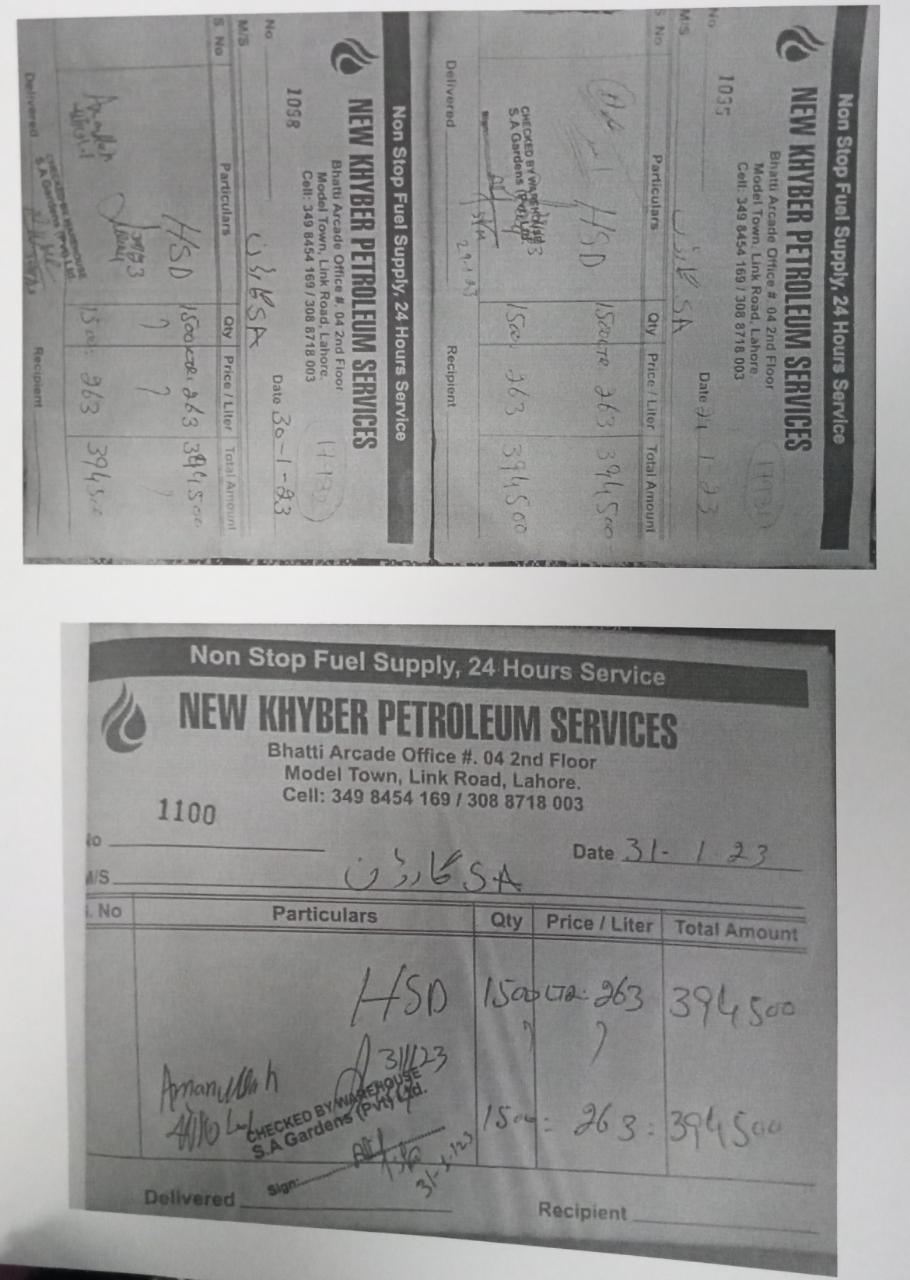 Non Stop Fuel Supply, 24 Hours Service
NEW KHYBER PETROLEUM SERVICES
Bhatti Arcade Office #. 04 2nd Floor
Model Town, Link Road, Lahore.
Cell: 349 8454 169 / 308 8718 003
1098
No Date 30-1-23
M/S SA گارڈن
S No Particulars Qty Price / Liter Total Amount
HSD 1500 LTR: 263 394500
1500: 263 394500
CHECKED BY WAREHOUSE
S.A Gardens (Pvt) Ltd.
Delivered Recipient
Non Stop Fuel Supply, 24 Hours Service
NEW KHYBER PETROLEUM SERVICES
Bhatti Arcade Office #. 04 2nd Floor
Model Town, Link Road, Lahore.
Cell: 349 8454 169 / 308 8718 003
1095
No Date 29-1-23
M/S SA گارڈن
S No Particulars Qty Price / Liter Total Amount
HSD 1500 LTR 263 394500
CHECKED BY WAREHOUSE
S.A Gardens (Pvt) Ltd.
1500: 263 394500
Sign:
29-1-23
Delivered Recipient
Non Stop Fuel Supply, 24 Hours Service
NEW KHYBER PETROLEUM SERVICES
Bhatti Arcade Office #. 04 2nd Floor
Model Town, Link Road, Lahore.
Cell: 349 8454 169 / 308 8718 003
1100
No Date 31-1-23
M/S SA گارڈن
S. No Particulars Qty Price / Liter Total Amount
HSD 1500 LTR: 263 394500
31/1/23
Amanullah
CHECKED BY WAREHOUSE
S.A Gardens (Pvt) Ltd.
1500: 263: 394500
Sign:
31-1-123
Delivered Recipient